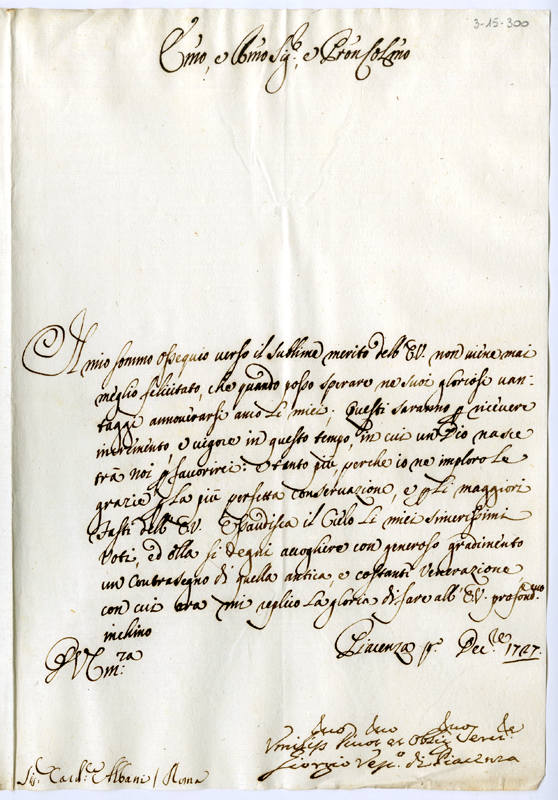 3-15-300
Emo, e Rmo Sig.r, e Pron Colmo
Il mio sommo ossequio verso il sublime merito dell' E.V. non viene mai
meglio felicitato, che quando posso sperare ne suoi gloriosi van-
taggi annoverarsi anco li miei; Questi saranno p ricevere
incremento, e vigore in questo tempo, in cui un Dio nasce
trà noi p favorirci: e tanto più, perche io ne imploro le
grazie p La più perfetta conservazione, e p Li maggiori
Fasti dell' E.V. Esaudisca il Cielo Li miei sincerissimi
Voti, ed ella si degni accogliere con generoso gradimento
un Contrasegno di quella antica, e costante Venerazione
con cui ora mi replico La gloria di fare all' E.V. profond.mo
inchino
D V Em.za
Piacenza p.º Dec.re 1727.
Umiliss.mo Divot.mo et Oblig.mo Serv.re
Giorgio Vesc.º di Piacenza
Sig. Card.le Albani / Roma